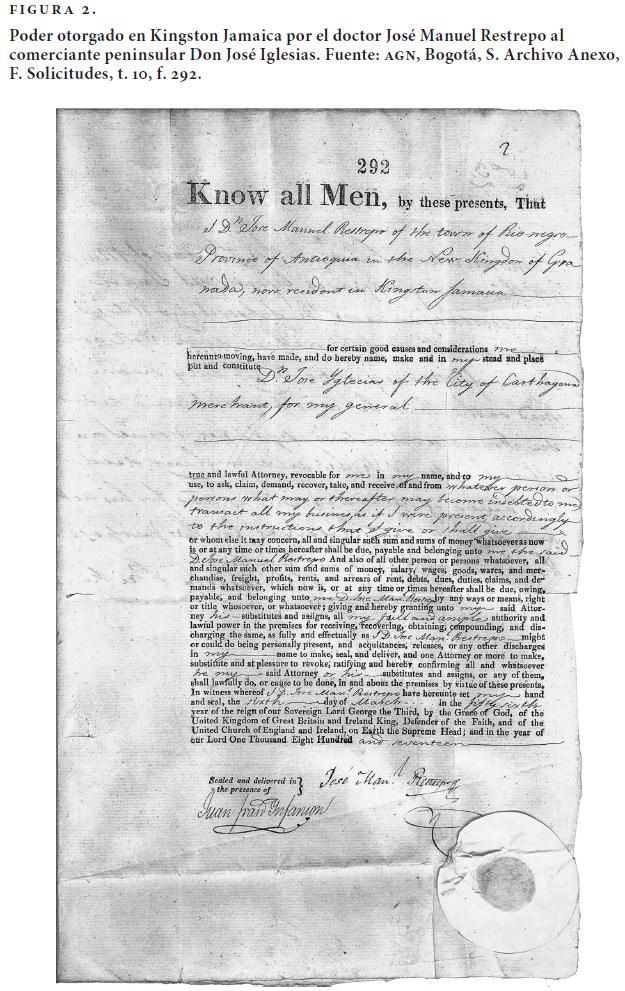 FIGURA 2.
Poder otorgado en Kingston Jamaica por el doctor José Manuel Restrepo al
comerciante peninsular Don José Iglesias. Fuente: AGN, Bogotá, S. Archivo Anexo,
F. Solicitudes, t. 10, f. 292.
2
292
Know all Men, by these presents, That
I Dn Jose Manuel Restrepo of the town of Rio negro
Province of Antioquia in the New Kingdon of Gra
nada, now resident in Kingston Jamaica
for certain good causes and considerations me
hereunto moving, have made, and do hereby name, make and in my stead and place
put and constitute
Dn Jose Yglecias of the City of Carthagena
merchant, for my general
true and lawful Attorney, revocable for me in my name, and to my
use, to ask, claim, demand, recover, take, and receive of and from whatever person or
persons what may or thereafter may become indebted to me
transact all my business, as if I were present, accordingly
to the instructions that I give or shall give
or whom else it may concern, all and singular such sum and sums of money whatsoever as now
is or at any time or times hereafter shall be due, payable and belonging unto me the said
D Jose Manuel Restrepo And also of all other person or persons whatsoever, all
and singular such other sum and sums of money, salary, wages, goods, wares, and mer-
chandise, freight, profits, rents, and arrears of rent, debts, dues, duties, claims, and de-
mands whatsoever, which now is, or at any time or times hereafter shall be due, owing,
payable, and belonging unto me D Jose Man. Restrepo by any ways or means, right
or title whosoever, or whatsoever; giving and hereby granting unto my said Attor-
ney his substitutes and assigns, all my full and ample authority and
lawful power in the premises for receiving, recovering, obtaining, compounding, and dis-
charging the same, as fully and effectually as I D Jose Man. Restrepo might
or could do being personally present, and acquittances, releases, or any other discharges
in my name to make, seal, and deliver, and one Attorney or more to make,
substitute and at pleasure to revoke; ratifying and hereby confirming all and whatsoever
he my said Attorney or his substitutes and assigns, or any of them,
shall lawfully do, or cause to be done, in and about the premises by virtue of these presents,
In witness whereof I D. Jose Man. Restrepo have hereunto set my hand
and seal, the sixth day of March in the fifty sixth
year of the reign of our Sovereign Lord George the Third, by the Grace of God, of the
United Kingdom of Great Britain and Ireland King, Defender of the Faith, and of the
United Church of England and Ireland, on Earth the Supreme Head; and in the year of
our Lord One Thousand Eight Hundred and seventeen
Sealed and delivered in
the presence of
José Man.l Restrepo
Juan